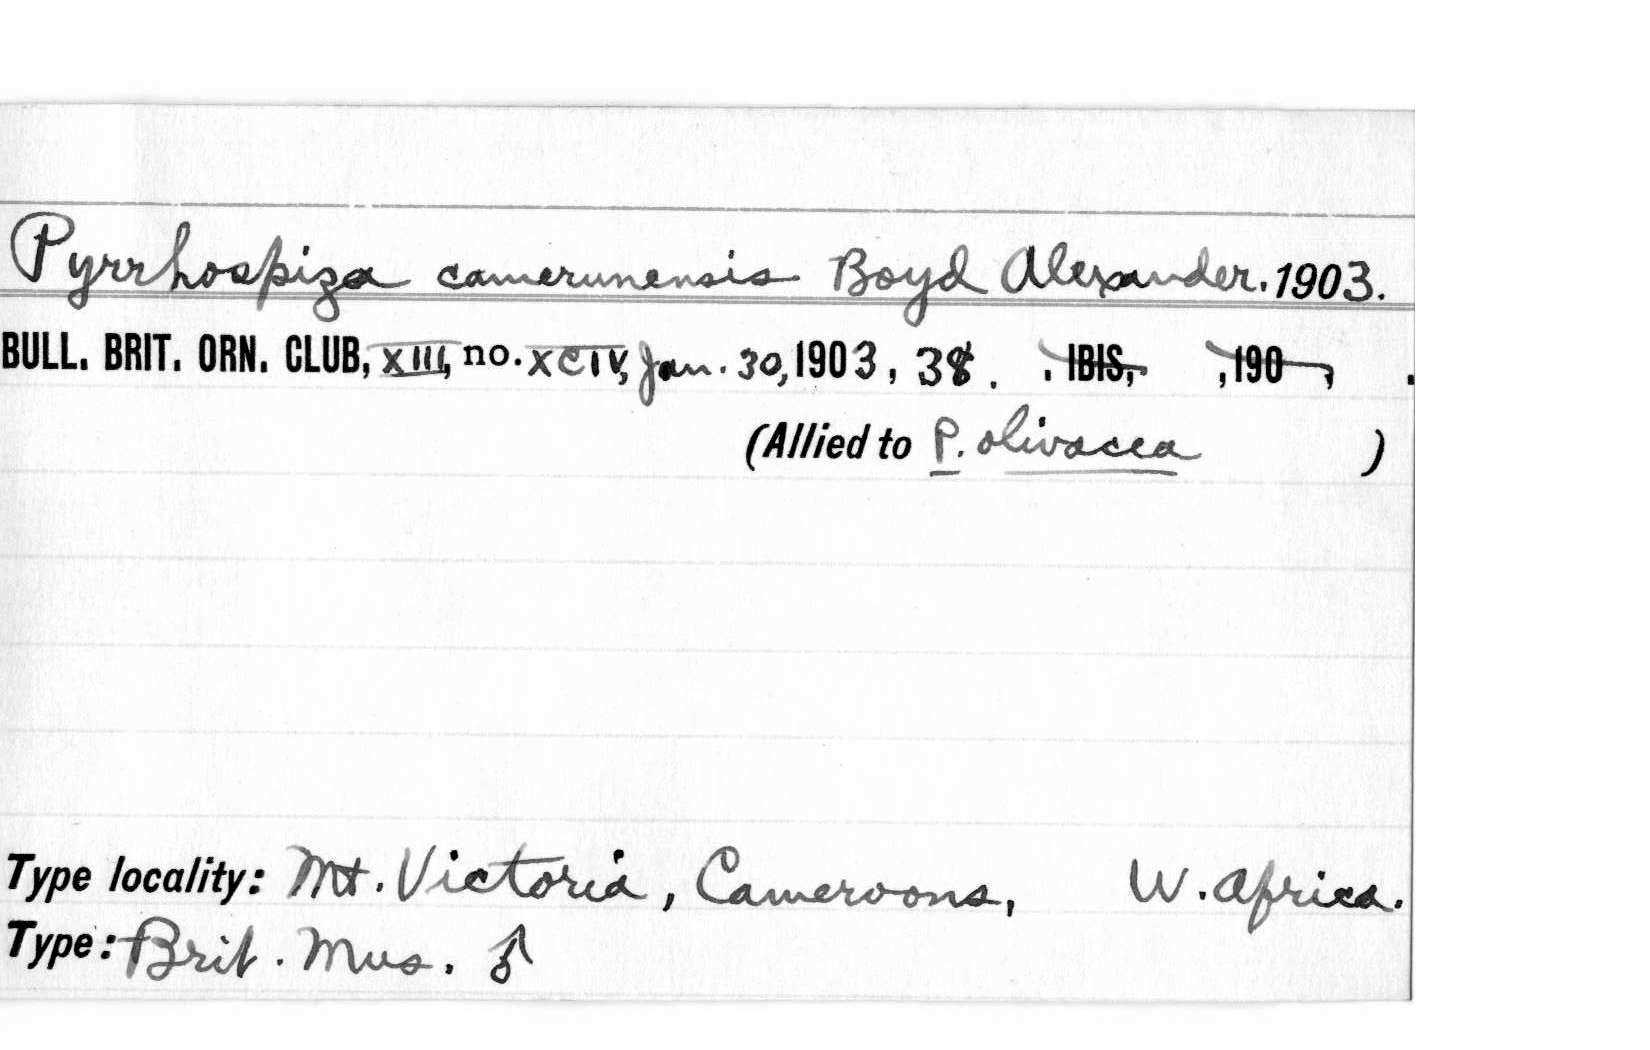 Pyrrhospiza camerunensis Boyd Alexander. 1903.
BULL. BRIT. ORN. CLUB, XIII, no. XCIV, Jan. 30, 1903, 38. . IBIS, , 190 , .
(Allied to P. olivacea )
Type locality: Mt. Victoria, Cameroons, W. Africa.
Type: Brit. Mus. ♂